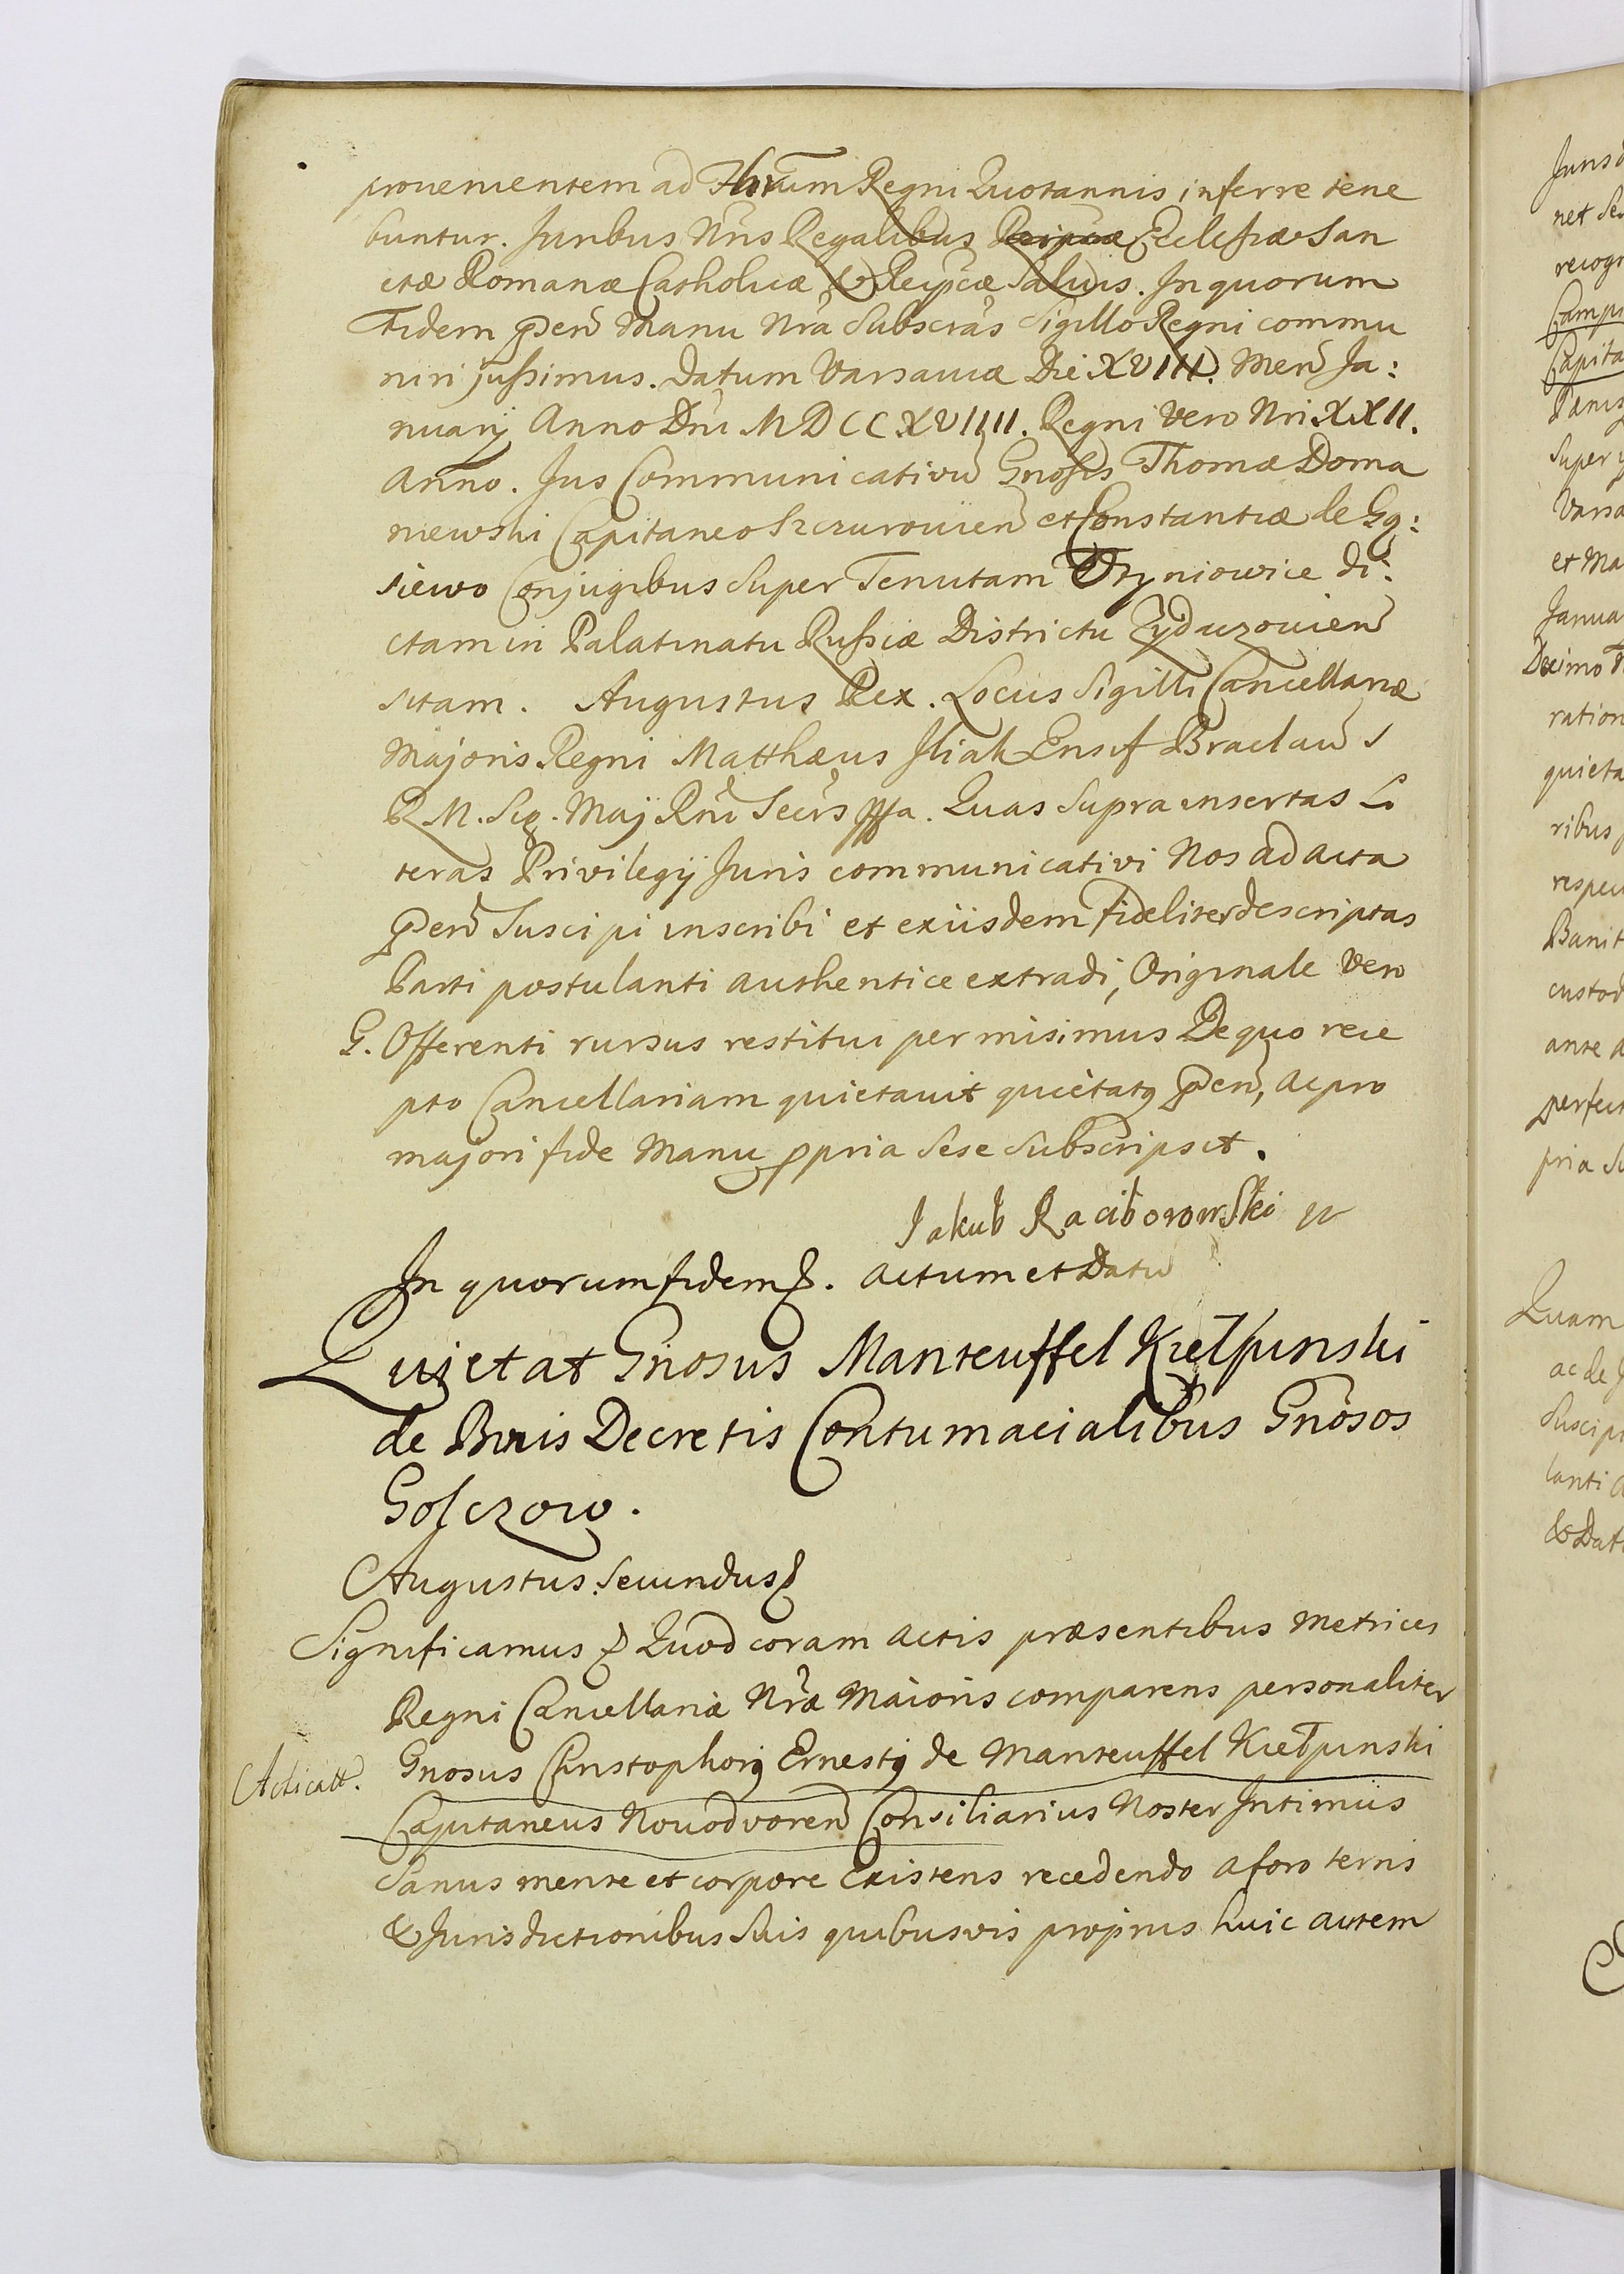 provenientem ad Thrum Regni Quotannis inferre tene
buntur. Juribus Nris Regalibus Reipcæ Ecclesiæ San
ctæ Romanæ Catholicæ & Reipcæ salvis. In quorum
Fidem pnen Manu Nra Subscras Sigillo Regni commu
niri jussimus. Datum Varsaviæ Die XVIII. Men Ja:
nuarij Anno Dni MDCCXVIIII. Regni vero Nri XXII.
Anno. Jus Communicativu Gnosis Thomæ Doma
niewski Capitaneo Szczurovicen et Constantiæ de Gą:
siewo Conjugibus Super Tenutam Hryniowice di:
ctam in Palatinatu Russiæ Districtu Zydaczovien
sitam. Augustus Rex. Locus Sigilli Cancellariæ
Majoris Regni Matthæus Iliak Ensif Braclaw S
R M. Sig. Maj Rni Secrs mppa. Quas Supra insertas Li
teras Privilegij Juris communicativi Nos ad acta
pnen Suscipi inscribi et exiisdem fideliter descriptas
Parti postulanti authentice extradi, Originale vero
G. Offerenti rursus restitui permisimus De quo rece
pto Cancellariam quietavit quietatq pnen, ac pro
majori fide Manu ppria Sese Subscripsit.
Jakub Raciborowski
In quorum fidem &. Actum et Datu
Quietat Gnosus Manteuffel Kiełpinski
de Binis Decretis Contumacialibus Gnosos
Golczow.
Augustus Secundus &
Significamus & Quod coram Actis præsentibus Metrices
Regni Cancellariæ Nræ Maioris comparens personaliter
Acticatt.
Gnosus Christophorq Ernestq de Manteuffel Kiełpinski
Capitaneus Novodvoren Consiliarius Noster Intimus
Sanus mente et corpore Existens recedendo a foro terris
& Jurisdictionibus suis quibusvis proprijs huic autem
Jurisd
net Se
recogn
Campi
Capita
Super
Varsa
et Ma
Janua
Decimo
ration
quieta
ribus
respec
Banit
custod
ante a
perfect
pria S
Quam
ac de
Suscipi
lanti a
& Dat